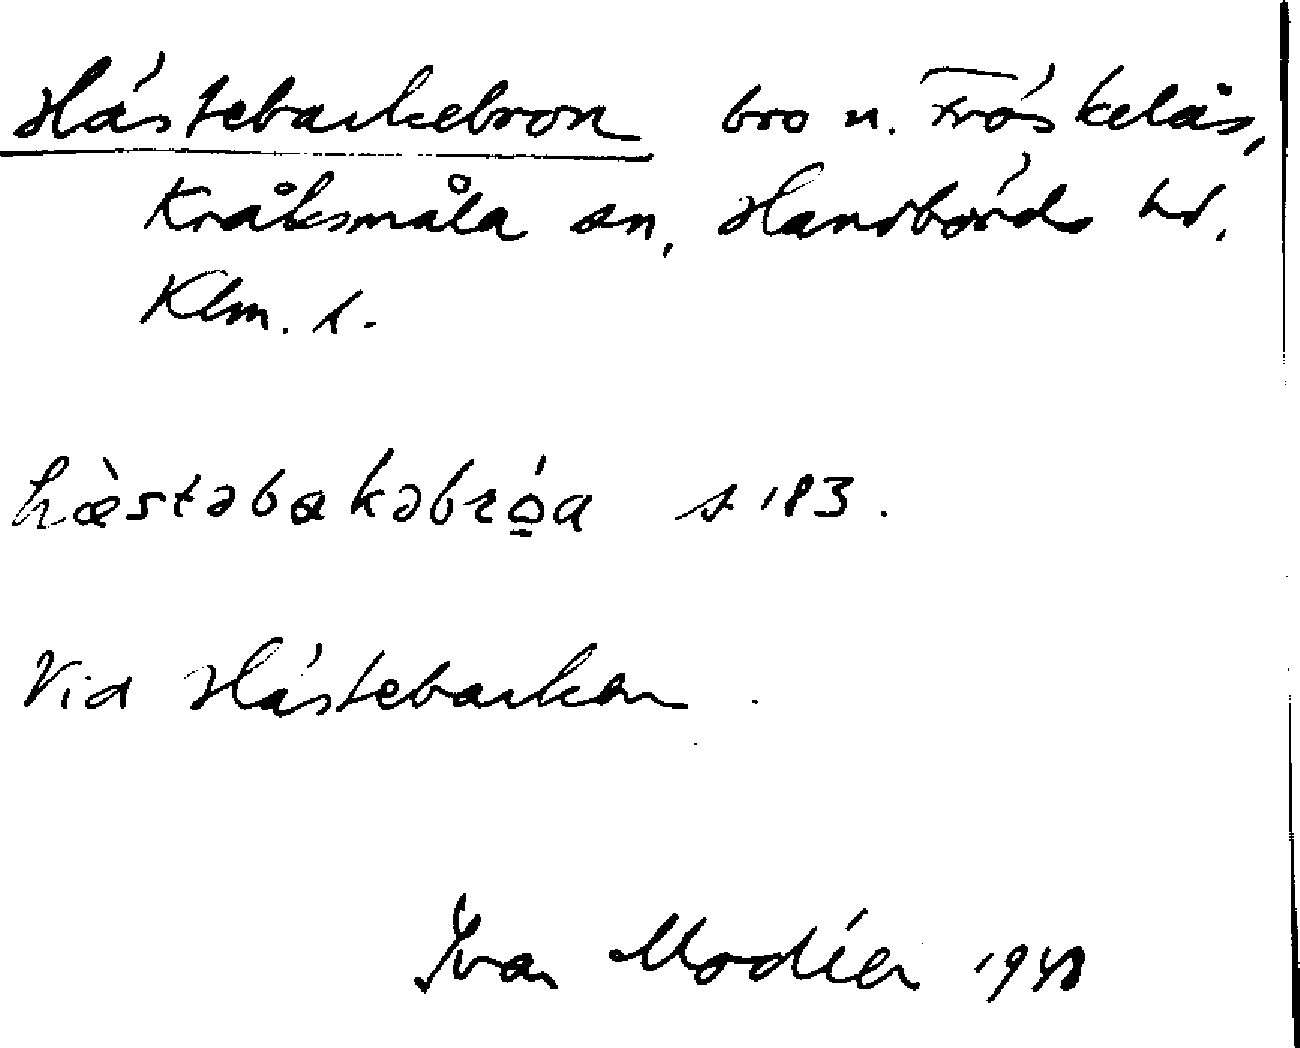 Hästebackebron bro n. Fröskelås,
Kråksmåla sn, Handbörds hd,
Klm. l.
hæ̀stəbakəbrǫ́a s 183.
Vid Hästebacken.
Ivar Modéer